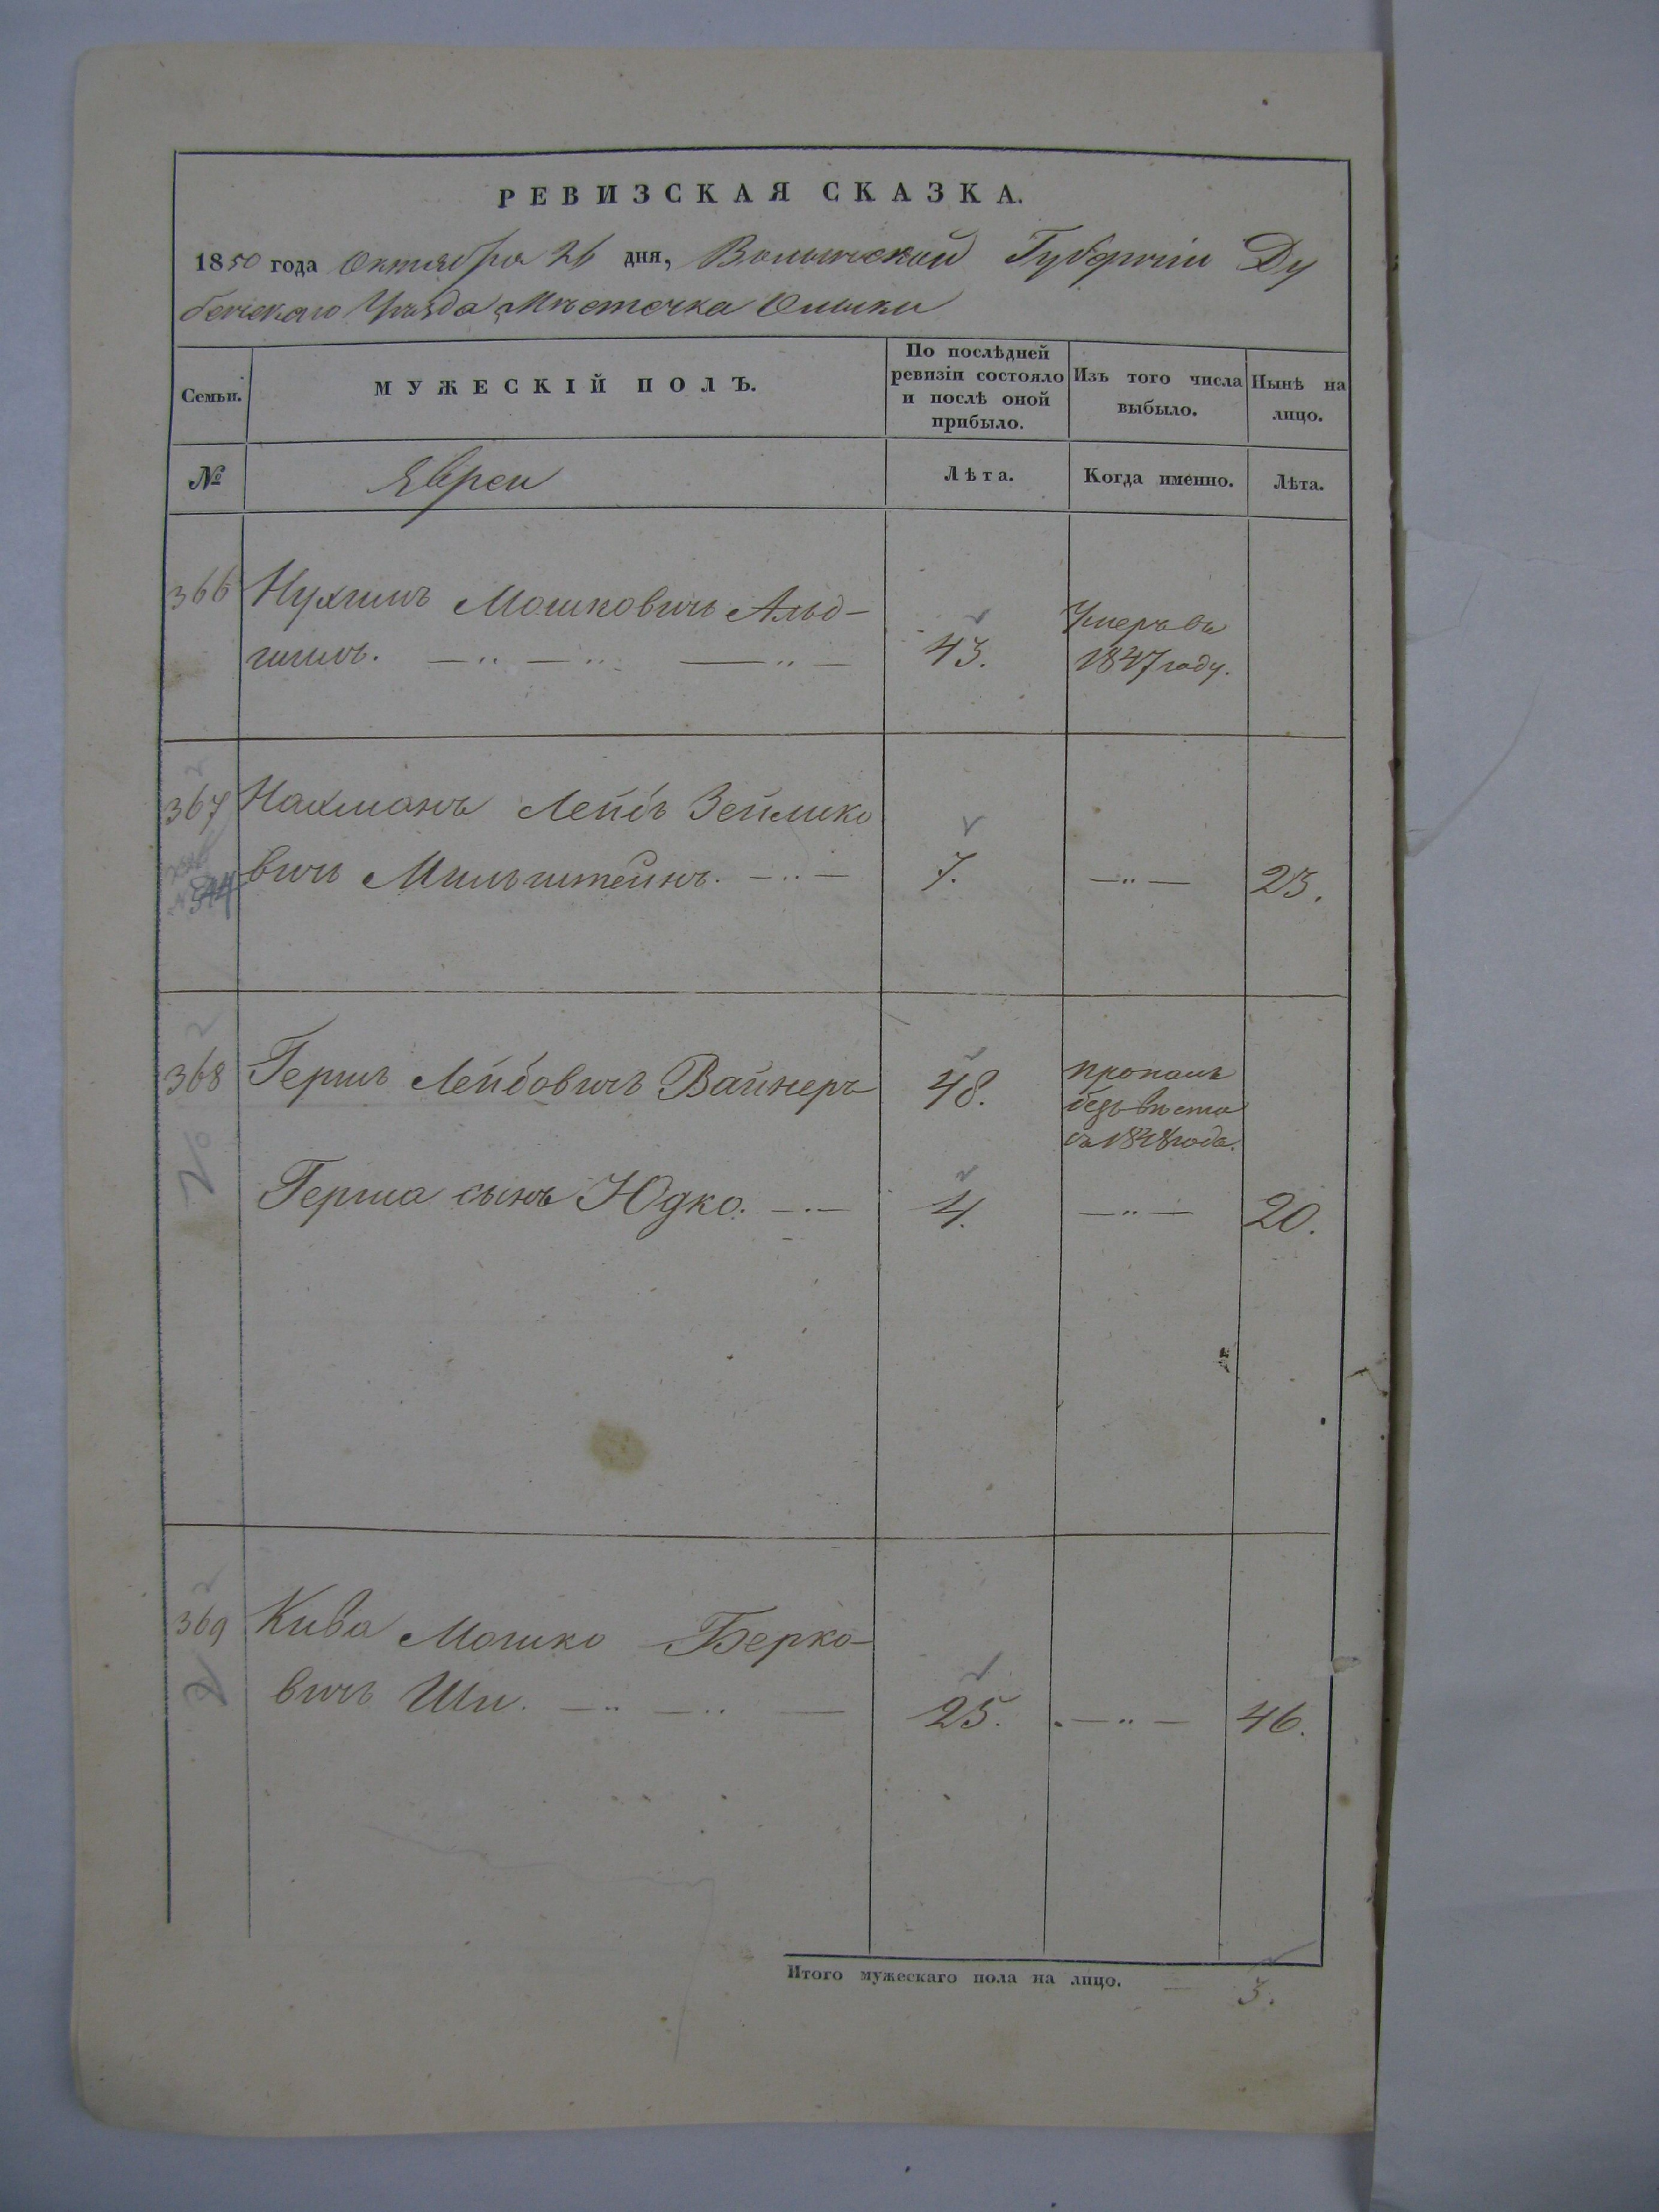 РЕВИЗСКАЯ СКАЗКА.
1850 года Октября 26 дня, Волынской Губерніи Ду
бенскаго Уѣзда Мѣстечка Олыки
Семьи.
МУЖЕСКІЙ ПОЛЪ.
По послѣдней
ревизіи состояло
и послѣ оной
прибыло.
Изъ того числа
выбыло.
Нынѣ на
лицо.
№
Евреи
Лѣта.
Когда именно.
Лѣта.
366 Нухимъ Мошковичъ Альд-
43.
Умеръ въ
1847 году.
367 Нахманъ Лейбъ Зейлико
вичъ Мильштейнъ. 7. 23.
544
368 Гершъ Лейбовичъ Вайнеръ 48.
пропалъ
безъ вѣсти
съ 1848 года.
Герша сынъ Юдко. 4. 20.
369 Кива Мошко Берко-
вичъ 25. 46.
Итого мужескаго пола на лицо. 3.